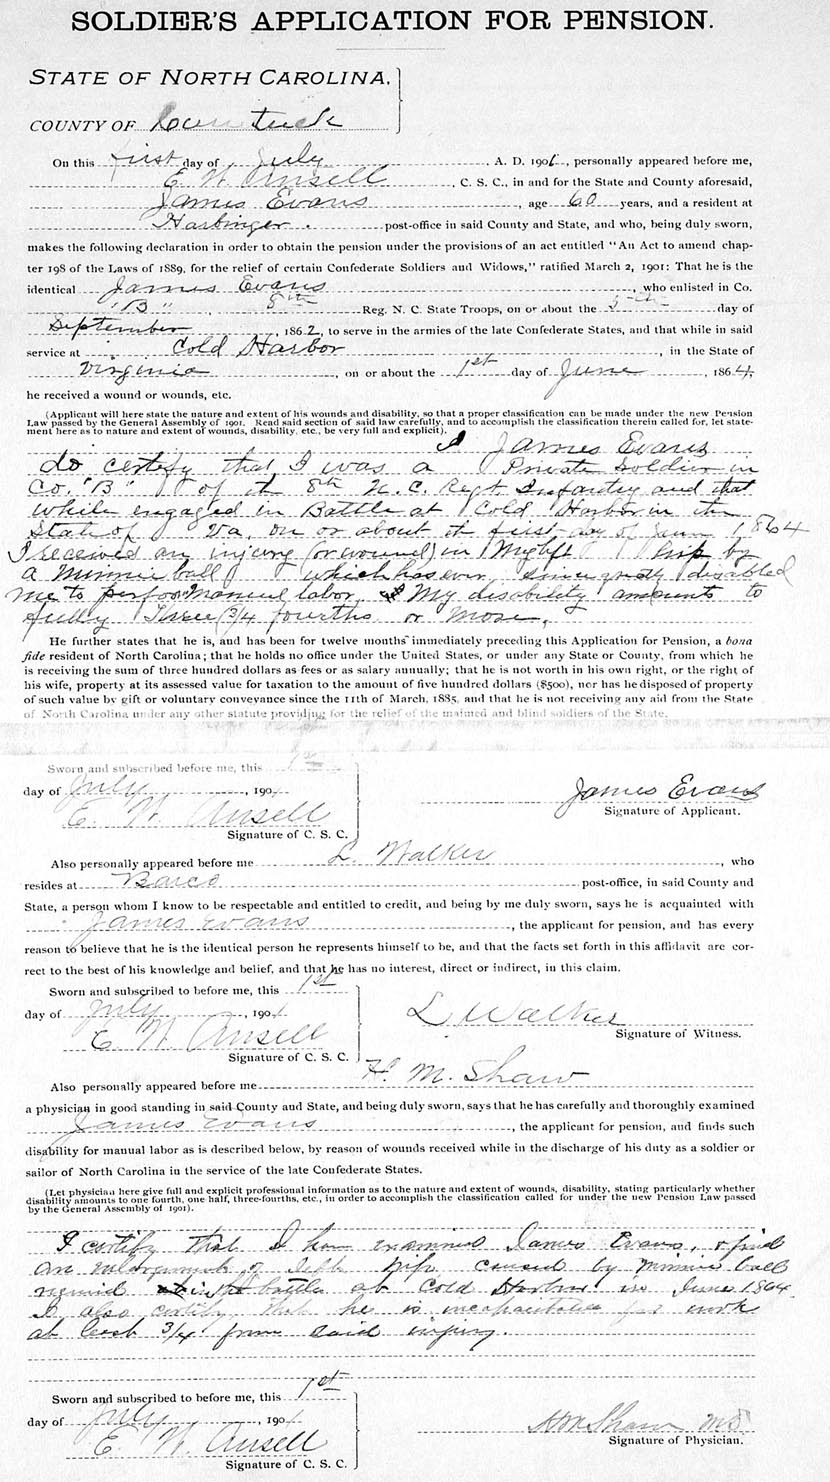 SOLDIER'S APPLICATION FOR PENSION.
STATE OF NORTH CAROLINA,
COUNTY OF Currituck
On this first day of July A. D. 1901, personally appeared before me,
E. W. Ansell, C. S. C., in and for the State and County aforesaid,
James Evans, age 60 years, and a resident at
Harbinger. post-office in said County and State, and who, being duly sworn,
makes the following declaration in order to obtain the pension under the provisions of an act entitled "An Act to amend chap-
ter 198 of the Laws of 1889, for the relief of certain Confederate Soldiers and Widows," ratified March 2, 1901: That he is the
identical James Evans, who enlisted in Co.
"B", 8th Reg. N. C. State Troops, on or about the 5th day of
September, 1862, to serve in the armies of the late Confederate States, and that while in said
service at Cold Harbor, in the State of
Virginia, on or about the 1st day of June, 1864,
he received a wound or wounds, etc.
(Applicant will here state the nature and extent of his wounds and disability, so that a proper classification can be made under the new Pension
Law passed by the General Assembly of 1901. Read said section of said law carefully, and to accomplish the classification therein called for, let state-
ment here as to nature and extent of wounds, disability, etc., be very full and explicit).
I James Evans
do certify that I was a Private Soldier in
Co. "B" of th 8th N. C. Regt. Infantry and that
while engaged in Battle at Cold Harbor in the
State of Va. on or about th first day of June 1864
I received an injury (or wound) in My left hip by
a Minnie ball which has ever since greatly disabled
me to perform manual labor My disability amounts to
fully Three (3/4 fourths or more.
He further states that he is, and has been for twelve months immediately preceding this Application for Pension, a bona
fide resident of North Carolina; that he holds no office under the United States, or under any State or County, from which he
is receiving the sum of three hundred dollars as fees or as salary annually; that he is not worth in his own right, or the right of
his wife, property at its assessed value for taxation to the amount of five hundred dollars ($500), nor has he disposed of property
of such value by gift or voluntary conveyance since the 11th of March, 1885, and that he is not receiving any aid from the State
of North Carolina under any other statute providing for the relief of the maimed and blind soldiers of the State.
Sworn and subscribed before me, this 1st
day of July, 190
E. W. Ansell
Signature of C. S. C.
James Evans
Signature of Applicant.
Also personally appeared before me L. Walker, who
resides at Barco post-office, in said County and
State, a person whom I know to be respectable and entitled to credit, and being by me duly sworn, says he is acquainted with
James Evans, the applicant for pension, and has every
reason to believe that he is the identical person he represents himself to be, and that the facts set forth in this affidavit are cor-
rect to the best of his knowledge and belief, and that he has no interest, direct or indirect, in this claim.
Sworn and subscribed to before me, this 1st
day of July, 1901
E. W. Ansell
Signature of C. S. C.
L Walker
Signature of Witness.
Also personally appeared before me H. M. Shaw
a physician in good standing in said County and State, and being duly sworn, says that he has carefully and thoroughly examined
James Evans, the applicant for pension, and finds such
disability for manual labor as is described below, by reason of wounds received while in the discharge of his duty as a soldier or
sailor of North Carolina in the service of the late Confederate States.
(Let physician here give full and explicit professional information as to the nature and extent of wounds, disability, stating particularly whether
disability amounts to one fourth, one half, three-fourths, etc., in order to accomplish the classification called for under the new Pension Law passed
by the General Assembly of 1901).
I certify that I have examined James Evans, & find
an enlargement of left hip caused by minnie ball
received in the battle at Cold Harbor in June 1864.
I also certify that he is incapacitated for work
at least 3/4 from said injury.
Sworn and subscribed to before me, this 1st
day of July, 1901
E. W. Ansell
Signature of C. S. C.
HM Shaw MD
Signature of Physician.